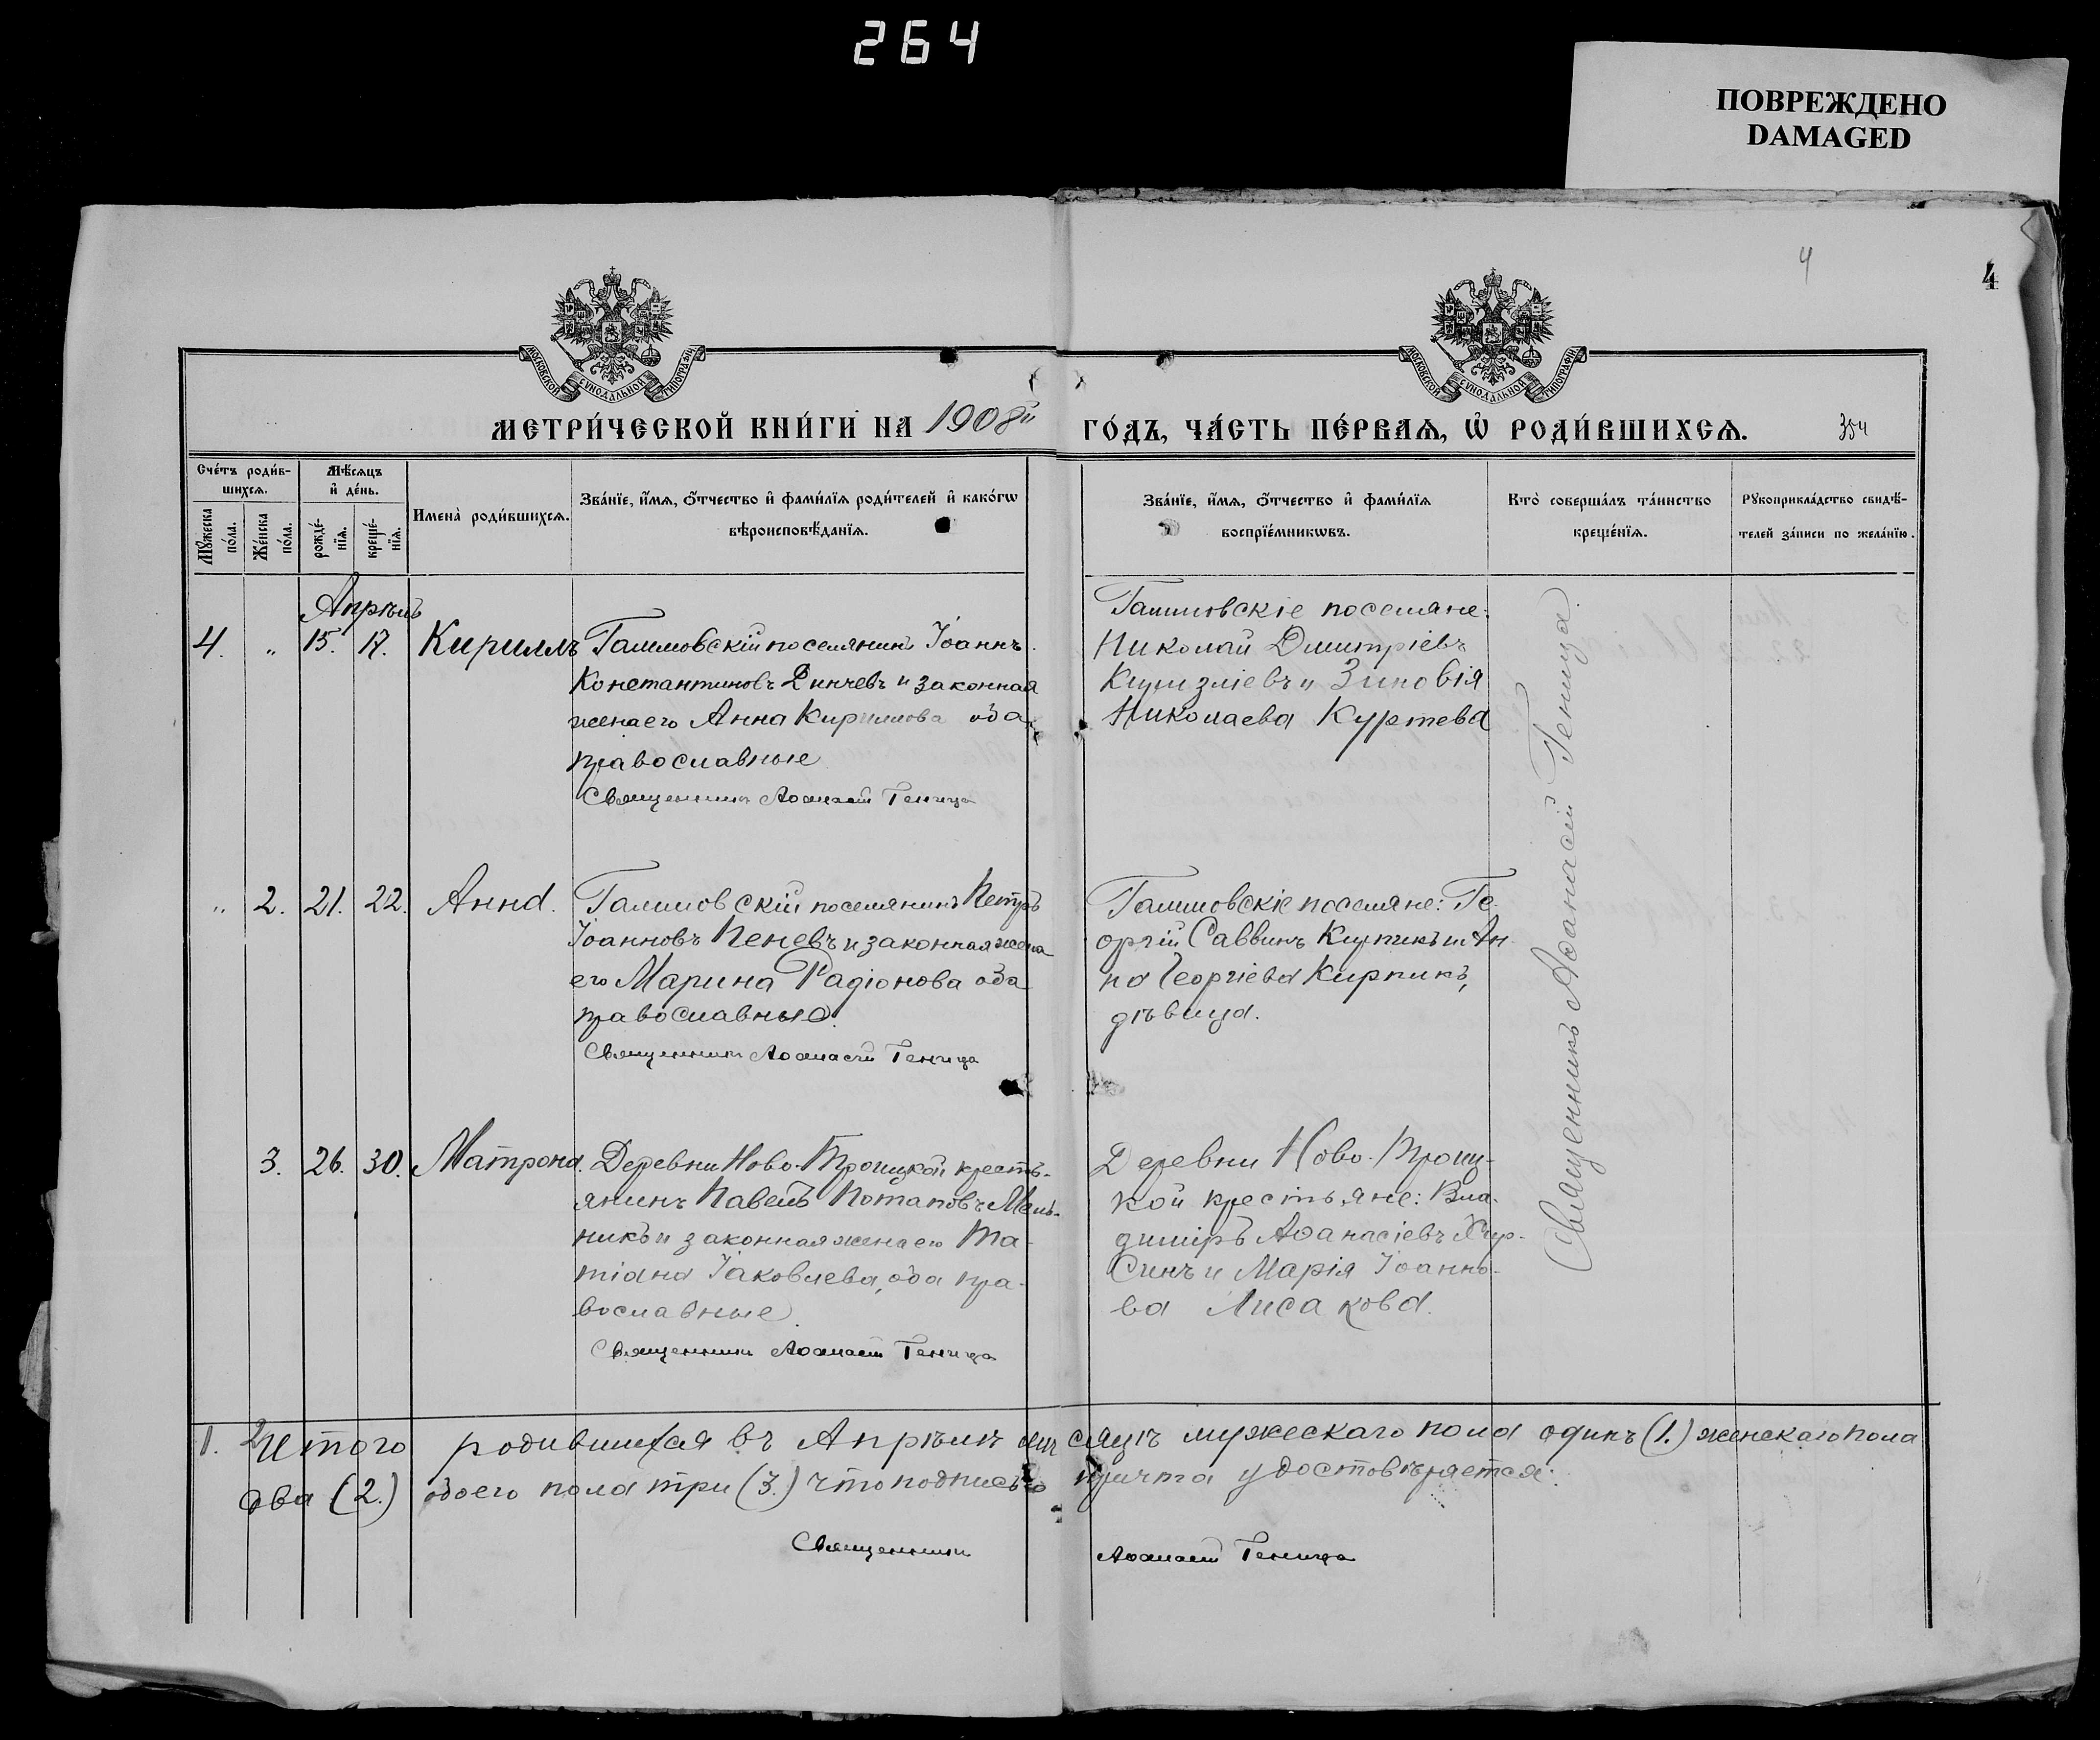 264
ПОВРЕЖДЕНО
DAMAGED
4
4
МОСКОВСКОЙ СѴНОДАЛЬНОЙ ТИПОГРАФІИ
МОСКОВСКОЙ СѴНОДАЛЬНОЙ ТИПОГРАФІИ
МЕТРИ́ЧЕСКОЙ КНИ́ГИ НА 1908й ГО́ДЪ, ЧА́СТЬ ПЕ́РВАѦ, Ѡ҆ РОДИ́ВШИХСѦ.
354
Сче́тъ роди́в-
шихсѧ.
Мꙋ́жеска по́ла.
Же́нска по́ла.
Мѣ́сѧцъ
и҆ де́нь.
рожде́-
нїѧ.
креще́-
нїѧ.
Имена̀ роди́вшихсѧ.
Зва́нїе, и҆́мѧ, ѻ҆́тчество и҆ фами́лїѧ роди́телей и҆ како́гѡ
вѣроисповѣ́данїѧ.
Зва́нїе, и҆́мѧ, ѻ҆́тчество и҆ фами́лїѧ
воспрїе́мникѡвъ.
Кто̀ соверша́лъ та́инство
креще́нїѧ.
Рꙋкоприкла́дство свидѣ́-
телей за́писи по жела́нїю.
Апрѣль
4. „ 15. 17. Кириллъ
Галиловскій поселянинъ Іоаннъ
Константиновъ Динчевъ и законная
жена его Анна Кириллова оба
православные
Священникъ Аѳанасій Геница
Галиловскіе поселяне:
Николай Димитріевъ
и Зиновія
Николаева Куртева
„ 2. 21. 22. Анна.
Галиловскій поселянинъ Петръ
Іоанновъ Пеневъ и законная жена
его Марина Радіонова оба
православные.
Священникъ Аѳанасій Геница
Галиловскіе поселяне: Ге-
оргій Саввинъ Кирпикъ и Ан-
на Георгіева Кирпикъ,
дѣвица.
3. 26. 30. Матрона.
Деревни Ново-Троицкой кресть-
янинъ Павелъ Потаповъ Мель-
никъ и законная жена его Та-
тіана Іаковлева, оба пра-
вославные.
Священникъ Аѳанасій Геница
Деревни Ново-Троиц-
кой крестьяне: Вла-
диміръ Аѳанасіевъ Хир-
синъ и Марія Іоанно-
ва Лисакова.
Священникъ Аѳанасій Геница.
1. 2 Итого родившихся въ Апрѣлѣ мѣсяцѣ мужескаго пола одинъ (1.) женскаго пола
два (2.) обоего пола три (3.) что подписью причта удостовѣряется:
Священникъ Аѳанасій Геница